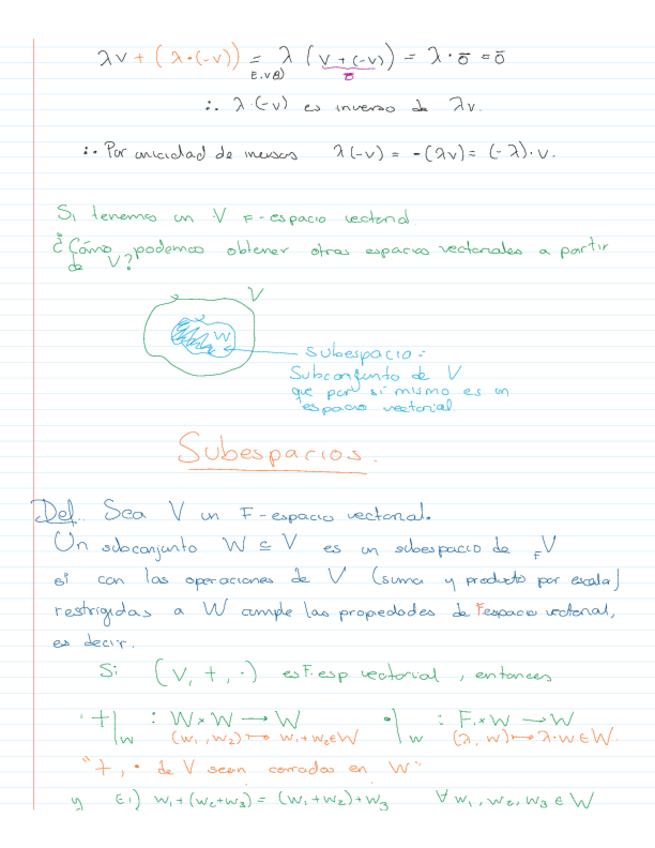 λv + (λ·(-v)) = λ (v + (-v)) = λ · ō = ō
E.V8) ō
∴ λ·(-v) es inverso de λv.
∴ Por unicidad de inversos λ(-v) = -(λv) = (-λ)·v.
Si tenemos un V F-espacio vectorial.
¿Cómo podemos obtener otros espacios vectoriales a partir
de V?
V
W
subespacio:
Subconjunto de V
que por si mismo es un
espacio vectorial.
Subespacios.
Def. Sea V un F-espacio vectorial.
Un subconjunto W ⊆ V es un subespacio de FV
si con las operaciones de V (suma y producto por escalar)
restrigidas a W cumple las propiedades de F espacio vectorial,
es decir.
Si (V, +, ·) es F. esp vectorial, entonces
+|w : W×W → W •|w : F×W → W
(w₁, w₂) ↦ w₁+w₂ ∈ W (λ, w) ↦ λ·w ∈ W.
"+, · de V sean cerradas en W"
y E1) w₁+(w₂+w₃) = (w₁+w₂)+w₃ ∀ w₁, w₂, w₃ ∈ W